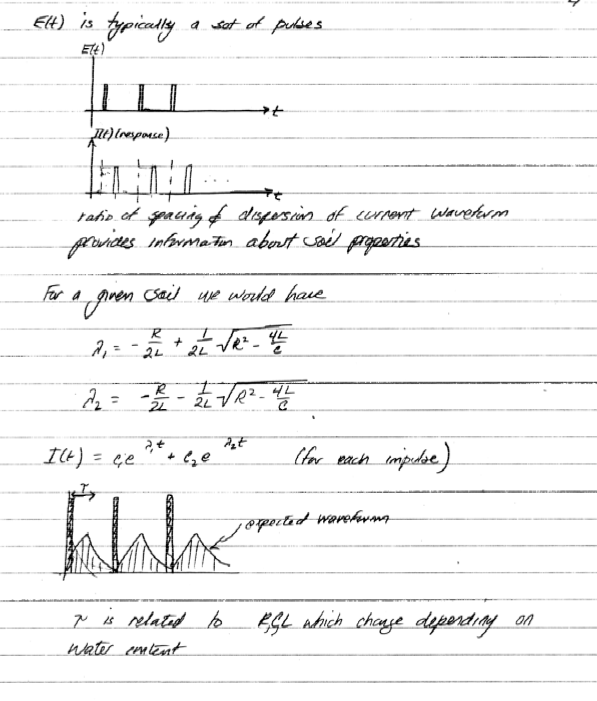 E(t) is typically a set of pulses
E(t)
t
I(t) (response)
t
ratio of spacing & dispersion of current waveform
provides information about soil properties
For a given soil we would have
λ₁ = - R/2L + 1/2L √(R² - 4L/C)
λ₂ = - R/2L - 1/2L √(R² - 4L/C)
I(t) = c₁e^(λ₁t) + c₂e^(λ₂t) (for each impulse)
τ
expected waveform
τ is related to R,C,L which change depending on
water content